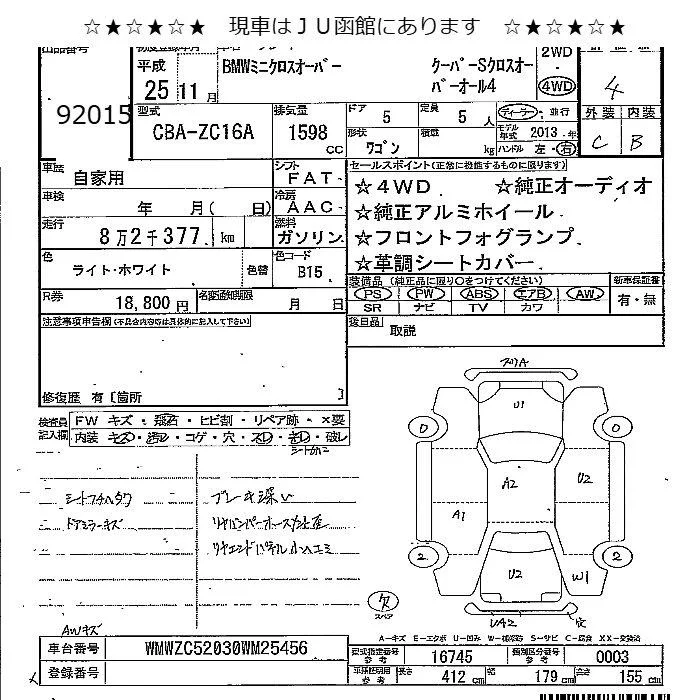 ☆★☆★☆★ 現車はＪＵ函館にあります ☆★☆★☆★
出品番号
92015
初度登録年月
平成
25 11 月
BMWミニクロスオーバー
クーパーSクロスオー
バーオール4
2WD
4WD
4
型式
CBA-ZC16A
排気量
1598 CC
ドア
5
定員
5 人
形状
ワゴン
積載
kg
ディーラー ・ 並行
モデル年式 2013 年
ハンドル 左 ・ 右
外装 内装
C B
車歴
自家用
シフト
FAT
車検
年 月( 日)
冷房
AAC
走行
8万2千377 km
燃料
ガソリン
色
ライト・ホワイト
色替
色コード
B15
R券
18,800 円
名変通知期限
月 日
セールスポイント(正常に機能するものに限ります)
☆4WD ☆純正オーディオ
☆純正アルミホイール
☆フロントフォグランプ
☆革調シートカバー
装備品 (純正品に限り○をつけてください)
PS PW ABS エアB AW
SR ナビ TV カワ
新車保証書
有・無
後日品
取説
注意事項申告欄(不具合内容等は具体的に記入して下さい)
修復歴 有 [箇所 ]
検査員記入欄
FW キズ・飛石・ヒビ割・リペア跡・×要
内装 キズ・汚レ・コゲ・穴・スレ・キレ・破レ
ドアミラーキズ
ブレーキ深い
AWキズ
U1
A2
U2
A1
U2
W1
UA2
穴
0
0
2
2
欠
スペア
A－キズ E－エクボ U－凹み W－補修跡 S－サビ C－腐食 XX－交換済
車台番号
WMWZC52030WM25456
登録番号
型式指定番号 参考
16745
類別区分番号 参考
0003
参考
長さ 412 cm
幅 179 cm
高さ 155 cm